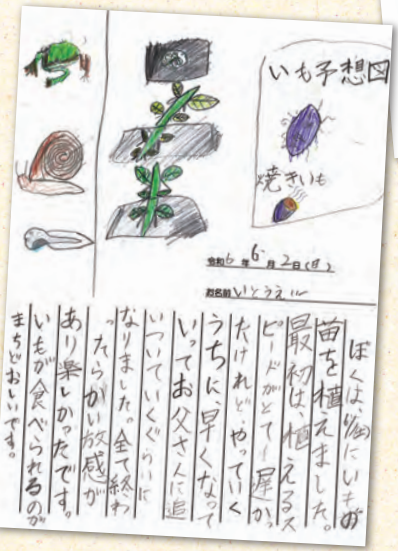 いも予想図
焼きいも
令和6年6月2日(日)
お名前 いとうえ
ぼくは畑にいもの
苗を植えました。
最初は、植えるス
ピードがとても遅かっ
たけれど、やっていく
うちに、早くなって
いってお父さんに追
いついていくぐらいに
なりました。全て終わ
ったらかい放感が
あり楽しかったです。
いもが食べられるのが
まちどおしいです。